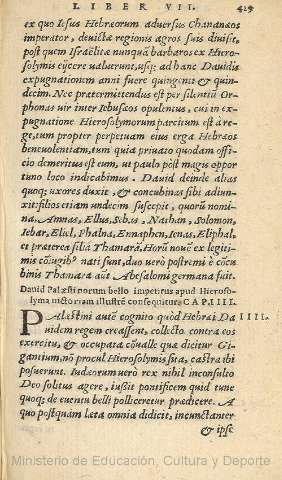 LIBER VII. 429
ex quo Iesus Hebræorum aduersus Chananæos
imperator, deuictæ regionis agros suis diuisit,
post quem Israëlitæ nunquã barbaros ex Hiero-
solymis eijcere ualuerunt, usq; ad hanc Dauidis
expugnationem anni fuere quingenti & quin-
decim. Nec prætermittendus est per silentiũ Or-
phonas uir inter Iebusæos opulentus, cui in ex-
pugnatione Hierosolymorum parcitum est à re-
ge, tum propter perpetuam eius erga Hebræos
beneuolentiam, tum quia priuato quodam offi-
cio demeritus est eum, ut paulo pòst magis oppor
tuno loco indicabimus. Dauid deinde alias
quoq; uxores duxit, & concubinas sibi adiun-
xit: filios etiam undecim suscepit, quorũ nomi-
na, Amnas, Ellus, Sebas, Nathan, Solomon,
Iebar, Eliel, Phalna, Ennaphen, Ienas, Eliphal,
et præterea filia Thamara. Horũ nouẽ ex legiti-
mis cõiugib' nati sunt, duo uerò postremi è concu
binis Thamara aũt Absalomi germana fuit.
Dauid Palæstinorum bello impetitus apud Hieroso-
lyma uictoriam illustrẽ consequitur. CAP. IIII.
Palæstini autẽ cognito quòd Hebræi Da IIII.
uidem regem creassent, collecto contra eos
exercitu, & occupata cõualle quæ dicitur Gi-
gantium, nõ procul Hierosolymis sita, castra ibi
posuerunt. Iudæorum uerò rex nihil inconsulto
Deo solitus agere, iußit pontificem quid tunc
quoq; de euentu belli polliceretur prædicere. A
quo postquàm læta omnia didicit, incunctanter
& ipse
Ministerio de Educación, Cultura y Deporte